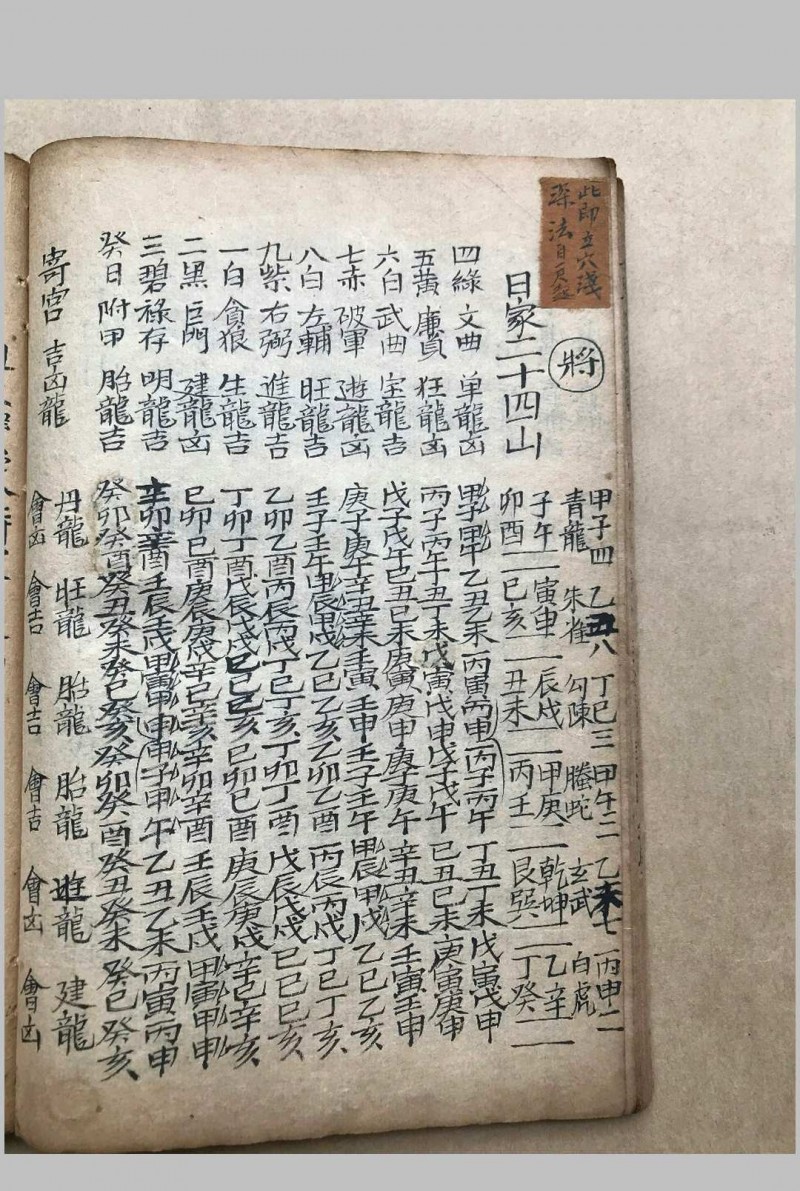 此即立穴淺
深法自
將
甲子四 乙丑八 丁巳三 甲午二 乙未七 丙申二
青龍 朱雀 勾陳 螣蛇 玄武 白虎
子午二 寅申二 辰戌二 甲庚二 乾坤二 乙辛二
日家二十四山 卯酉二 巳亥二 丑未二 丙壬二 艮巽二 丁癸二
四綠 文曲 单龍凶 甲子甲午乙丑乙未丙寅丙申丙子丙午丁丑丁未戊寅戊申
五黃 廉貞 狂龍凶 丙子丙午丁丑丁未戊寅戊申戊子戊午己丑己未庚寅庚申
六白 武曲 宝龍吉 戊子戊午己丑己未庚寅庚申庚子庚午辛丑辛未壬寅壬申
七赤 破軍 遊龍凶 庚子庚午辛丑辛未壬寅壬申壬子壬午甲辰甲戌乙巳乙亥
八白 左輔 旺龍吉 壬子壬午甲辰甲戌乙巳乙亥乙卯乙酉丙辰丙戌丁巳丁亥
九紫 右弼 進龍吉 乙卯乙酉丙辰丙戌丁巳丁亥丁卯丁酉戊辰戊戌己巳己亥
一白 貪狼 生龍吉 丁卯丁酉戊辰戊戌己巳己亥己卯己酉庚辰庚戌辛巳辛亥
二黑 巨門 建龍凶 己卯己酉庚辰庚戌辛巳辛亥辛卯辛酉壬辰壬戌甲寅甲申
三碧 祿存 明龍吉 辛卯辛酉壬辰壬戌甲寅甲申甲子甲午乙丑乙未丙寅丙申
癸日 附甲 胎龍吉 癸卯癸酉癸丑癸未癸巳癸亥癸卯癸酉癸丑癸未癸巳癸亥
寄宮 吉凶龍 丹龍 旺龍 胎龍 胎龍 遊龍 建龍
會凶 會吉 會吉 會吉 會凶 會凶